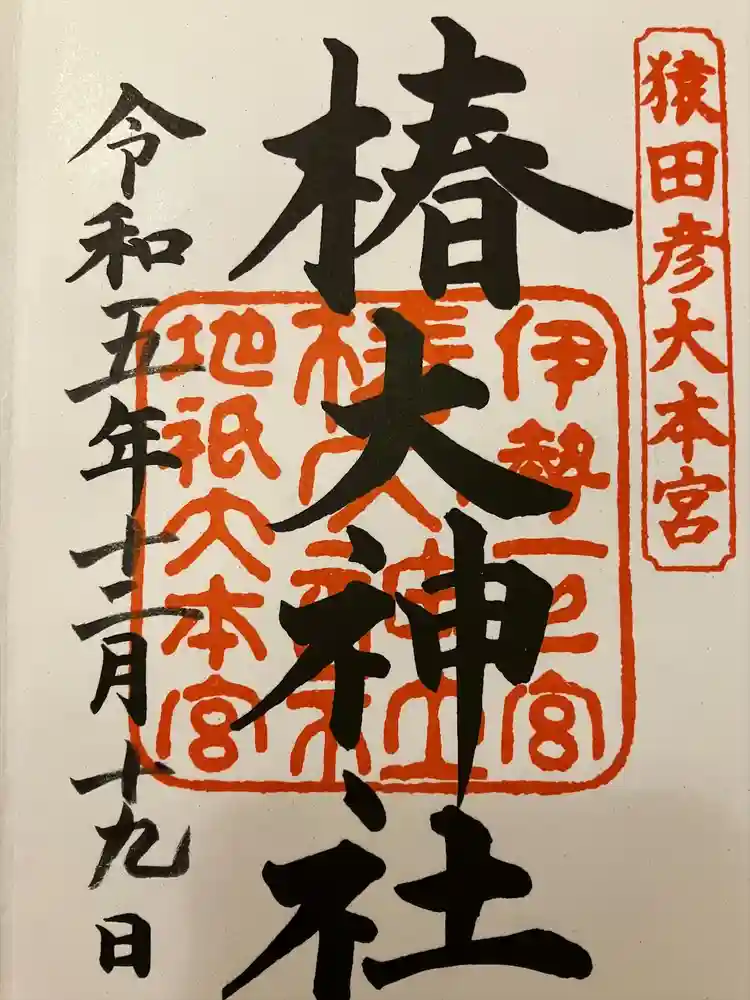 猿田彦大本宮
椿大神社
伊勢一之宮
椿大神社
地祇大本宮
令和五年十二月十九日